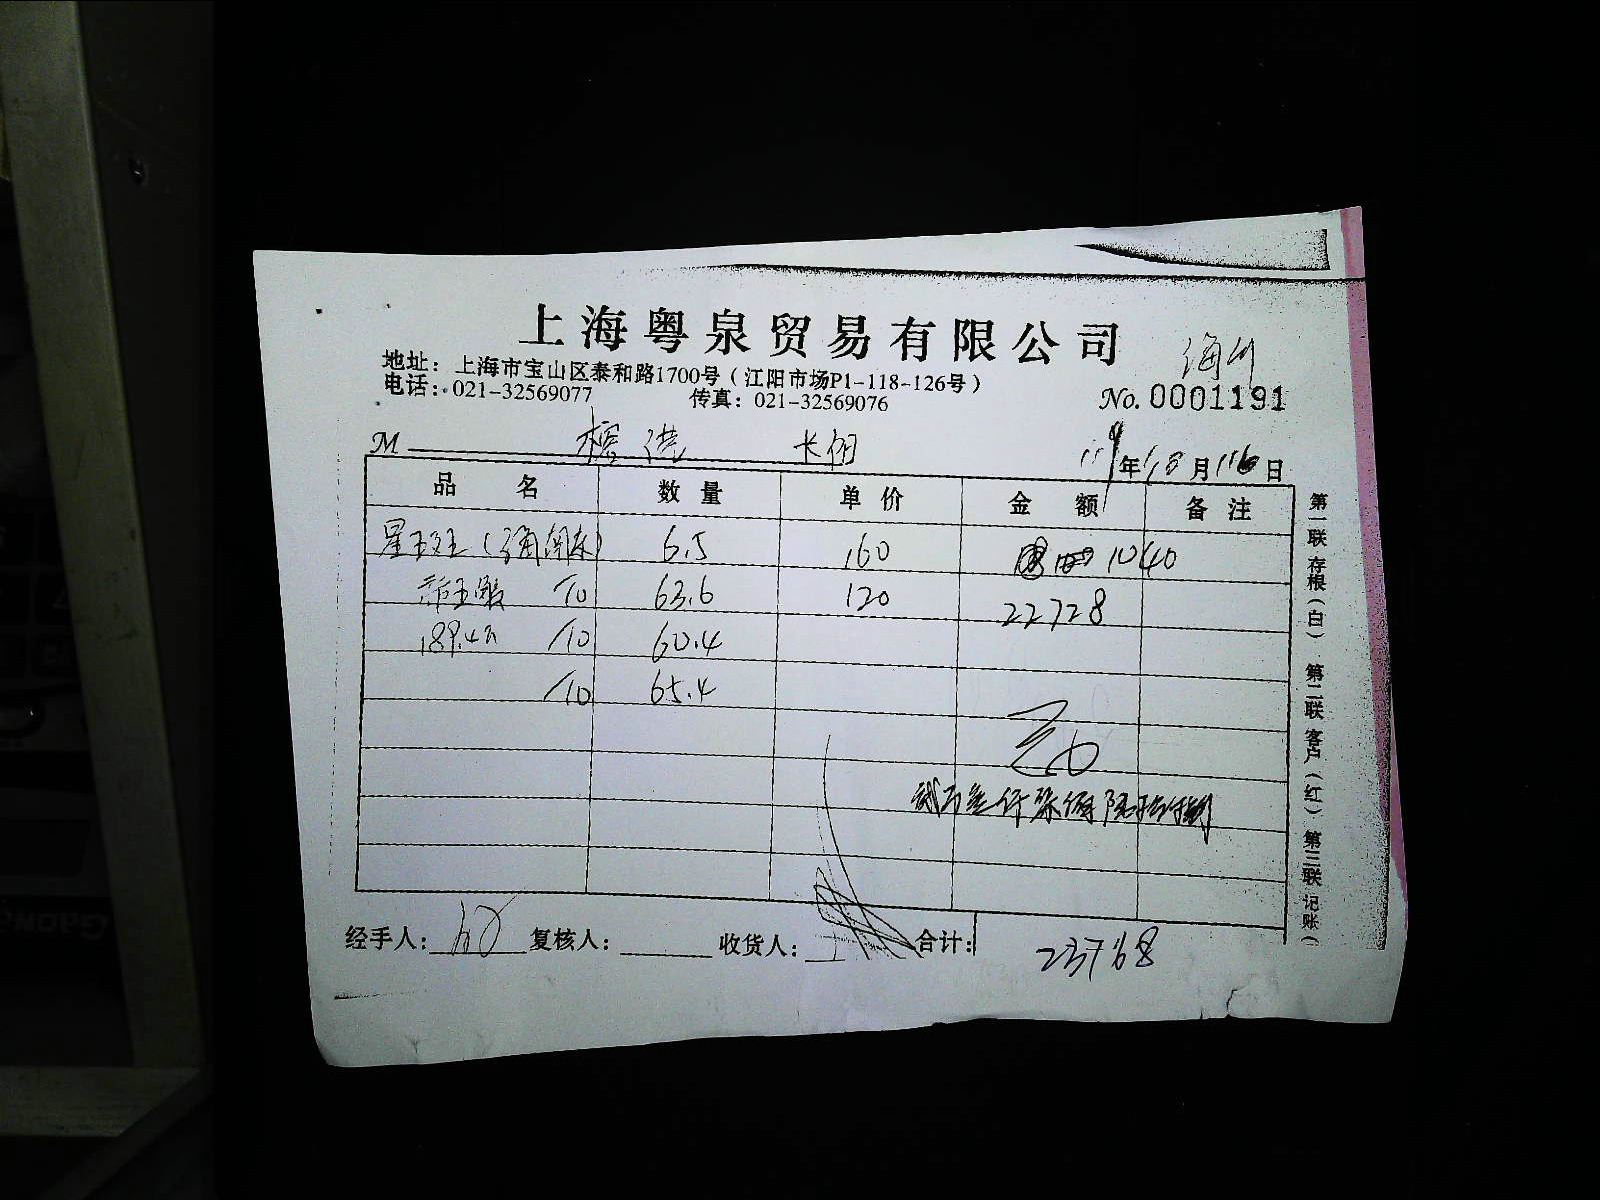 上海粤泉贸易有限公司
地址：上海市宝山区泰和路1700号（江阳市场P1-118-126号）
电话：021-32569077 传真：021-32569076
No. 0001191
M
年 月 日
品名 数量 单价 金额 备注
星王班 6.5 160 1040
/10 63.6 120 22728
189.4 /10 60.4
/10 65.4
经手人： 复核人： 收货人： 合计： 23768
第一联 存根（白） 第二联 客户（红） 第三联 记账（